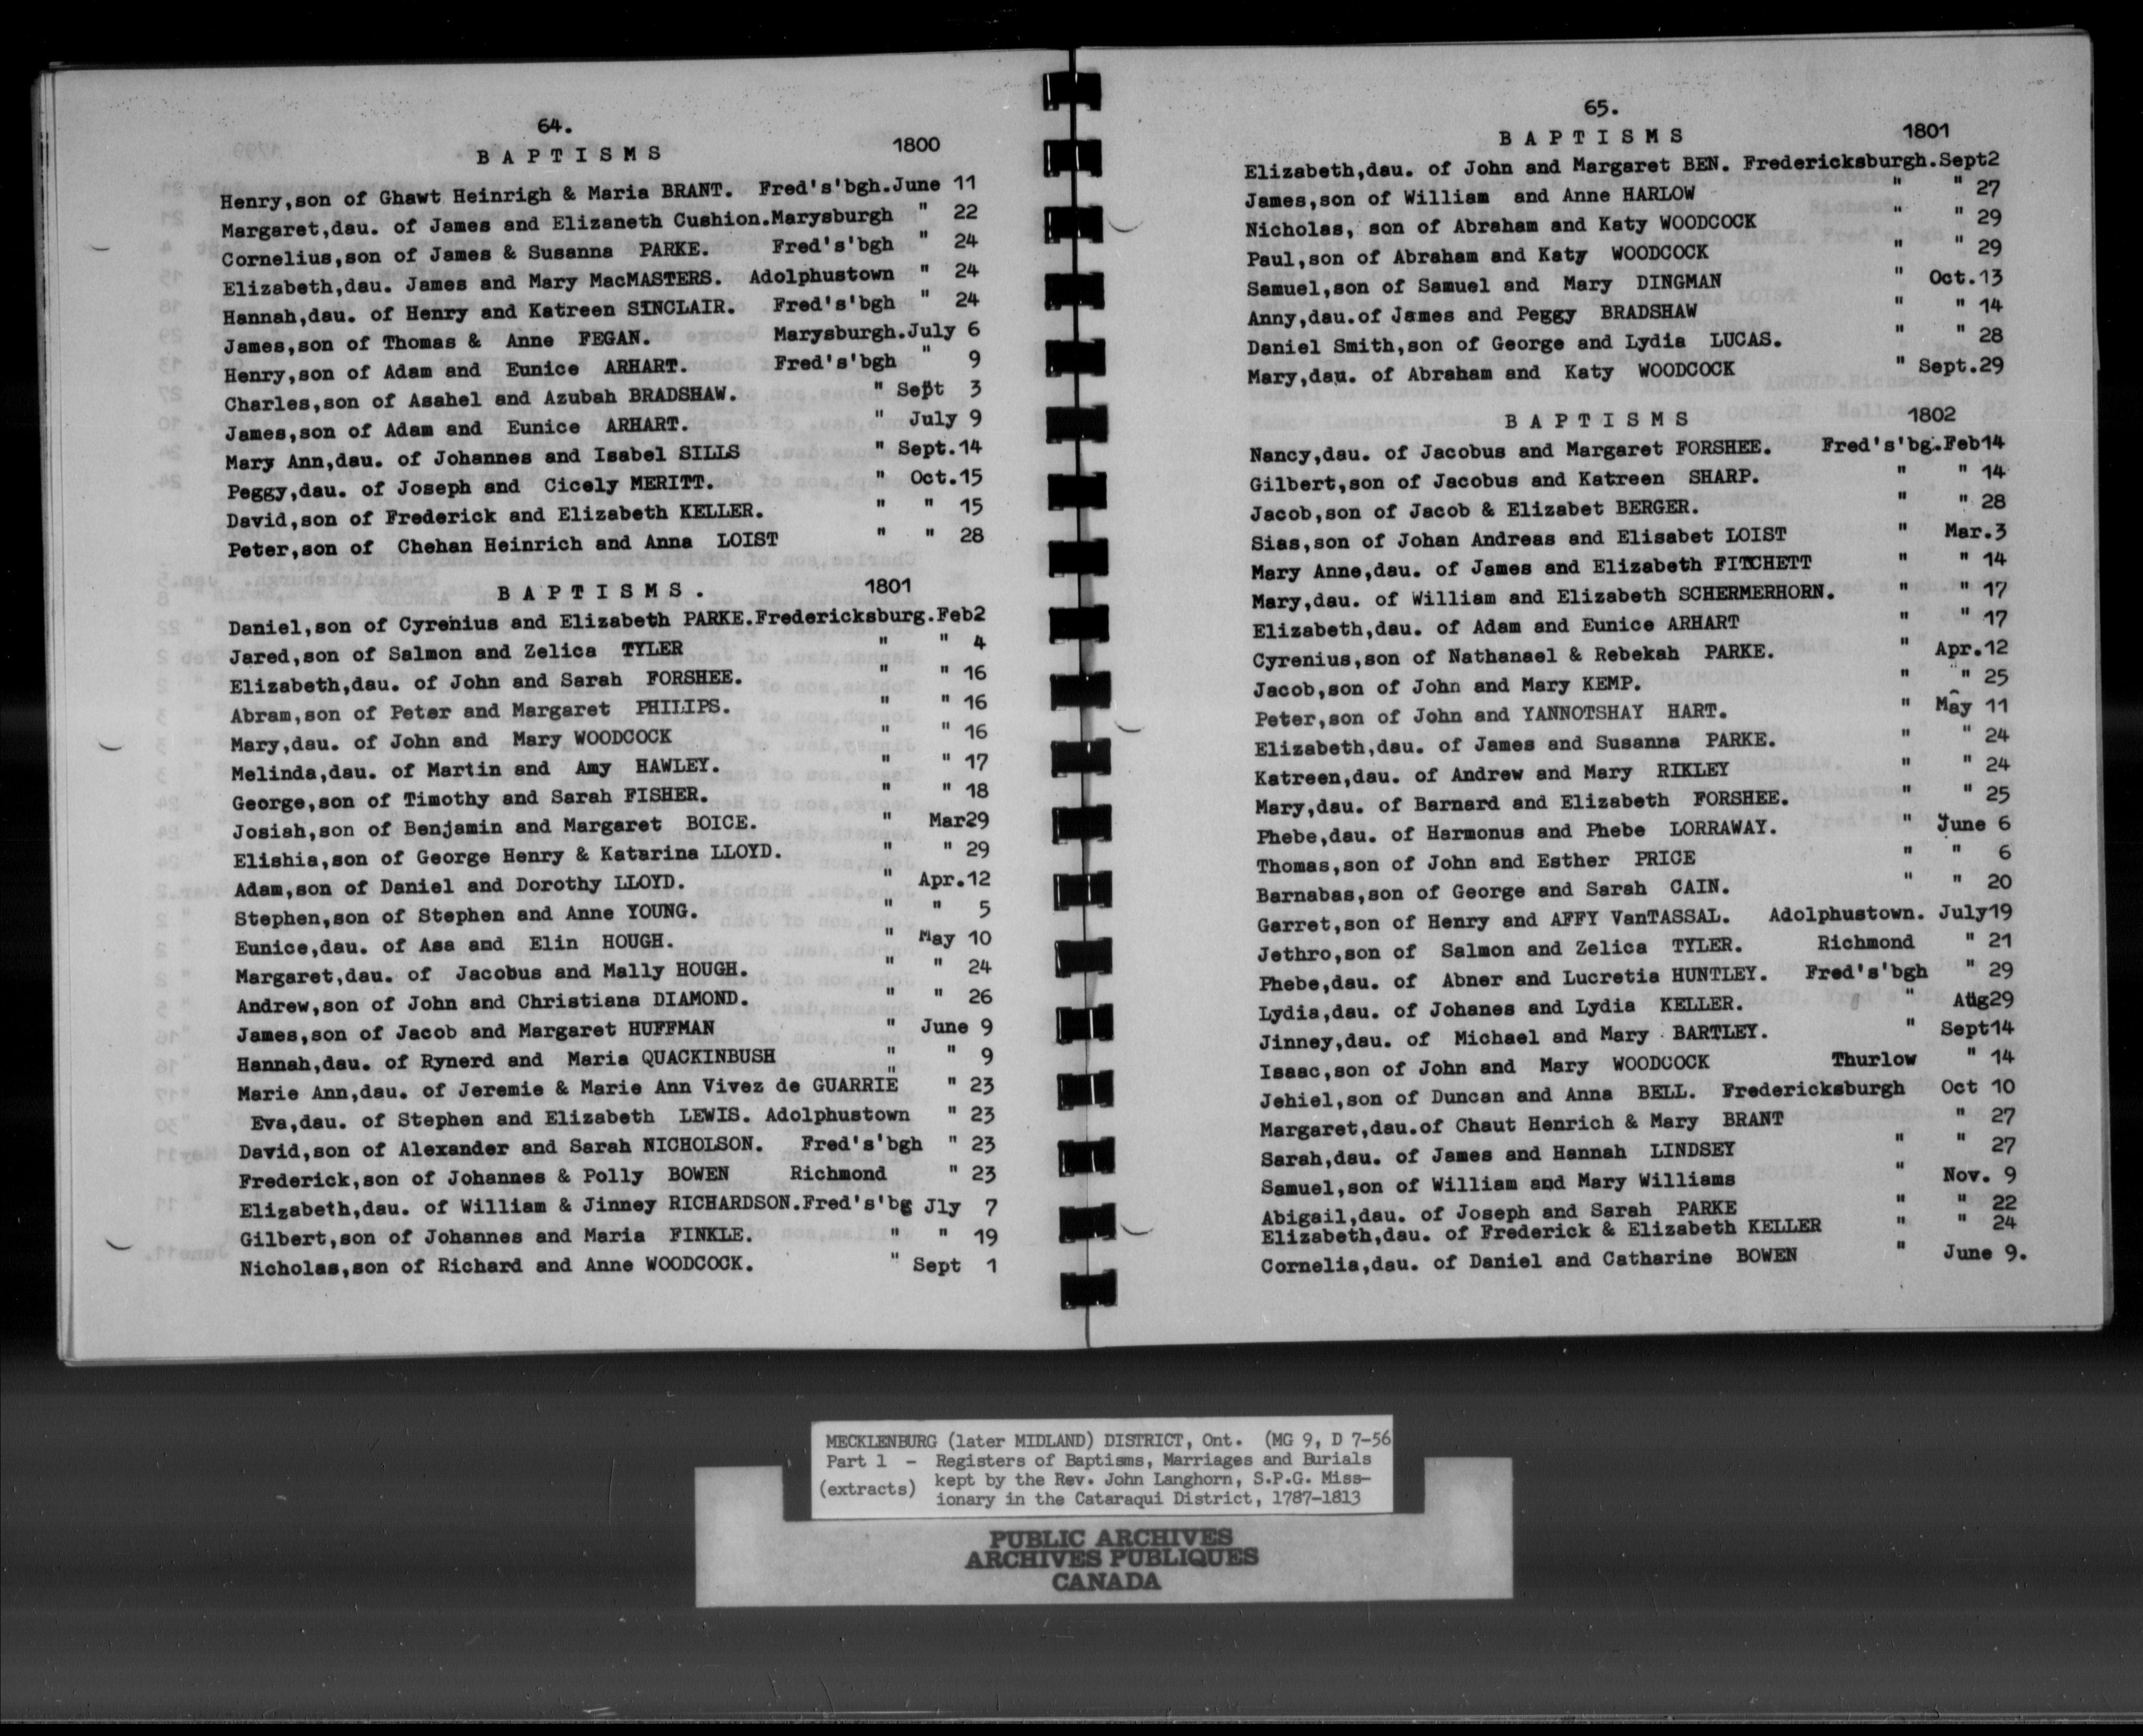 64.
BAPTISMS 1800
Henry,son of Ghawt Heinrigh & Maria BRANT. Fred's'bgh.June 11
Margaret,dau. of James and Elizaneth Cushion.Marysburgh " 22
Cornelius,son of James & Susanna PARKE. Fred's'bgh " 24
Elizabeth,dau. James and Mary MacMASTERS. Adolphustown " 24
Hannah,dau. of Henry and Katreen SINCLAIR. Fred's'bgh " 24
James,son of Thomas & Anne FEGAN. Marysburgh.July 6
Henry,son of Adam and Eunice ARHART. Fred's'bgh " 9
Charles,son of Asahel and Azubah BRADSHAW. " Sept 3
James,son of Adam and Eunice ARHART. " July 9
Mary Ann,dau. of Johannes and Isabel SILLS " Sept.14
Peggy,dau. of Joseph and Cicely MERITT. " Oct.15
David,son of Frederick and Elizabeth KELLER. " " 15
Peter,son of Chehan Heinrich and Anna LOIST " " 28
BAPTISMS. 1801
Daniel,son of Cyrenius and Elizabeth PARKE.Fredericksburg.Feb2
Jared,son of Salmon and Zelica TYLER " " 4
Elizabeth,dau. of John and Sarah FORSHEE. " " 16
Abram,son of Peter and Margaret PHILIPS. " " 16
Mary,dau. of John and Mary WOODCOCK " " 16
Melinda,dau. of Martin and Amy HAWLEY. " " 17
George,son of Timothy and Sarah FISHER. " " 18
Josiah,son of Benjamin and Margaret BOICE. " Mar29
Elishia,son of George Henry & Katarina LLOYD. " " 29
Adam,son of Daniel and Dorothy LLOYD. " Apr.12
Stephen,son of Stephen and Anne YOUNG. " " 5
Eunice,dau. of Asa and Elin HOUGH. " May 10
Margaret,dau. of Jacobus and Mally HOUGH. " " 24
Andrew,son of John and Christiana DIAMOND. " " 26
James,son of Jacob and Margaret HUFFMAN " June 9
Hannah,dau. of Rynerd and Maria QUACKINBUSH " " 9
Marie Ann,dau. of Jeremie & Marie Ann Vivez de GUARRIE " " 23
Eva,dau. of Stephen and Elizabeth LEWIS. Adolphustown " 23
David,son of Alexander and Sarah NICHOLSON. Fred's'bgh " 23
Frederick,son of Johannes & Polly BOWEN Richmond " 23
Elizabeth,dau. of William & Jinney RICHARDSON.Fred's'bg Jly 7
Gilbert,son of Johannes and Maria FINKLE. " " 19
Nicholas,son of Richard and Anne WOODCOCK. " Sept 1
65.
BAPTISMS 1801
Elizabeth,dau. of John and Margaret BEN. Fredericksburgh.Sept2
James,son of William and Anne HARLOW " " 27
Nicholas, son of Abraham and Katy WOODCOCK " " 29
Paul,son of Abraham and Katy WOODCOCK " " 29
Samuel,son of Samuel and Mary DINGMAN " Oct.13
Anny,dau.of James and Peggy BRADSHAW " " 14
Daniel Smith,son of George and Lydia LUCAS. " " 28
Mary,dau. of Abraham and Katy WOODCOCK " Sept.29
BAPTISMS 1802
Nancy,dau. of Jacobus and Margaret FORSHEE. Fred's'bg.Feb14
Gilbert,son of Jacobus and Katreen SHARP. " " 14
Jacob,son of Jacob & Elizabet BERGER. " " 28
Sias,son of Johan Andreas and Elisabet LOIST " Mar.3
Mary Anne,dau. of James and Elizabeth FITCHETT " " 14
Mary,dau. of William and Elizabeth SCHERMERHORN. " " 17
Elizabeth,dau. of Adam and Eunice ARHART " " 17
Cyrenius,son of Nathanael & Rebekah PARKE. " Apr.12
Jacob,son of John and Mary KEMP. " " 25
Peter,son of John and YANNOTSHAY HART. " May 11
Elizabeth,dau. of James and Susanna PARKE. " " 24
Katreen,dau. of Andrew and Mary RIKLEY " " 24
Mary,dau. of Barnard and Elizabeth FORSHEE. " " 25
Phebe,dau. of Harmonus and Phebe LORRAWAY. " June 6
Thomas,son of John and Esther PRICE " " 6
Barnabas,son of George and Sarah CAIN. " " 20
Garret,son of Henry and AFFY VanTASSAL. Adolphustown. July19
Jethro,son of Salmon and Zelica TYLER. Richmond " 21
Phebe,dau. of Abner and Lucretia HUNTLEY. Fred's'bgh " 29
Lydia,dau. of Johanes and Lydia KELLER. " Aug29
Jinney,dau. of Michael and Mary BARTLEY. " Sept14
Isaac,son of John and Mary WOODCOCK Thurlow " 14
Jehiel,son of Duncan and Anna BELL. Fredericksburgh Oct 10
Margaret,dau.of Chaut Henrich & Mary BRANT " 27
Sarah,dau. of James and Hannah LINDSEY " " 27
Samuel,son of William and Mary Williams " Nov. 9
Abigail,dau. of Joseph and Sarah PARKE " " 22
Elizabeth,dau. of Frederick & Elizabeth KELLER " " 24
Cornelia,dau. of Daniel and Catharine BOWEN " June 9.
MECKLENBURG (later MIDLAND) DISTRICT, Ont. (MG 9, D 7-56
Part 1 - Registers of Baptisms, Marriages and Burials
(extracts) kept by the Rev. John Langhorn, S.P.G. Miss-
ionary in the Cataraqui District, 1787-1813
PUBLIC ARCHIVES
ARCHIVES PUBLIQUES
CANADA